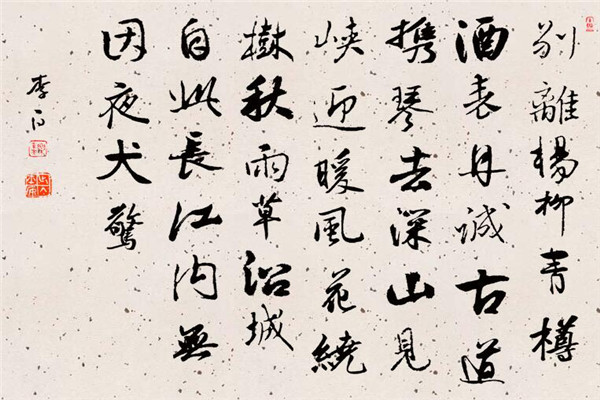 别離楊柳青樽
酒表丹誠古道
携琴去深山見
峽迎暖風花繞
樹秋雨草沿城
自此長江内無
因夜犬驚